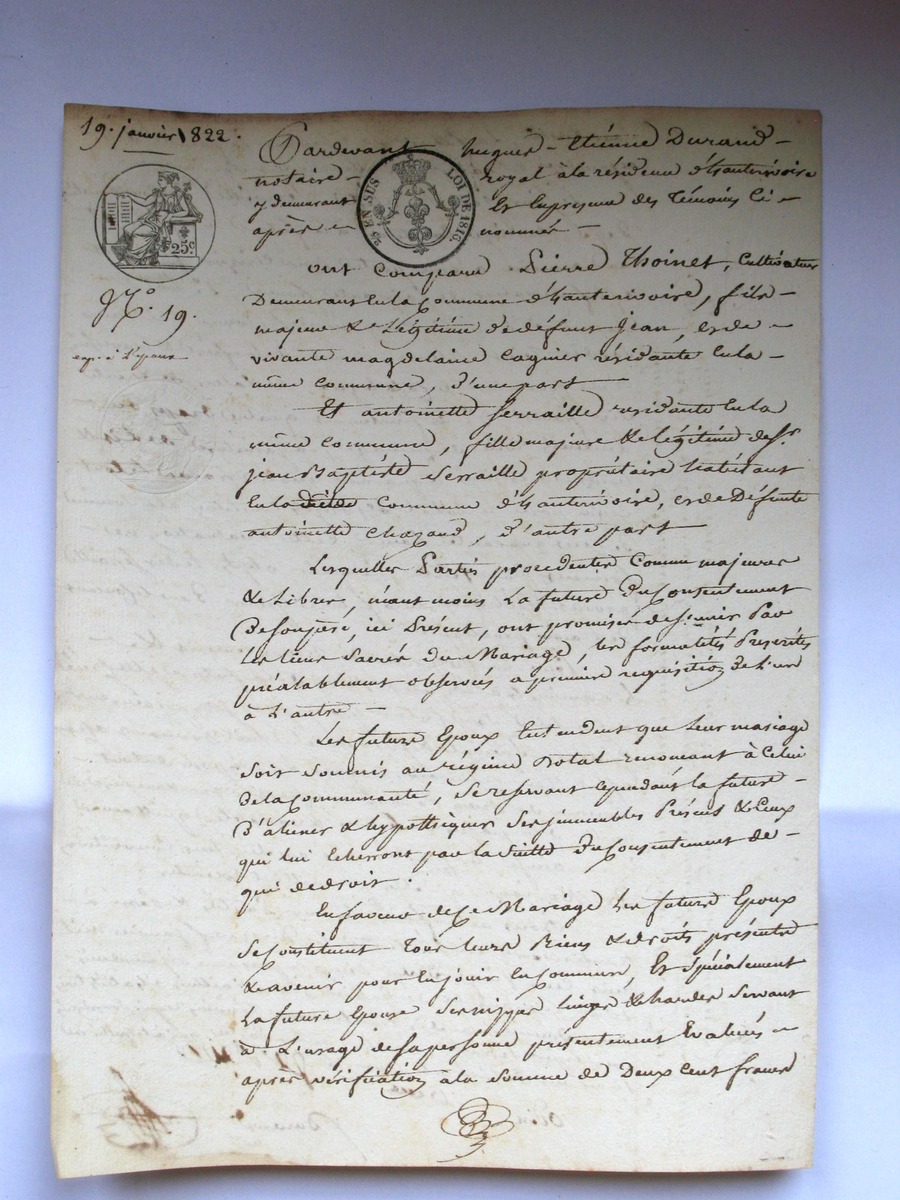 19. janvier 1822.
Pardevant hugues - Etiénne Durand -
notaire - royal à la résidence d'hauterivoire
y demeurant Et En presence des Témoins Ci -
après - nommés -
25 EN SUS LOI DE 1816
25c.
N.o 19.
ont Comparu Pierre Thoinet, Cultivateur
Demeurant En la Commune d'hauterivoire, fils -
majeur & Légitime de défunt Jean, et de -
vivante magdelaine Cagnier résidante En la -
même Commune, d'une part -
Et antoinette Serraille residante En la
même Commune, fille majeure & Légitime de Sr.
jean Baptiste Serraille propriétaire habitant
En la dite Commune d'hauterivoire, et de Défunte
antoinette Chazaud, d'autre part
Lesquelles Parties procedantes Comme majeures
& Libres, néant moins La future du Consentement
De Son père, ici Présent, ont promises de S'unir Par
Les liens Sacrés Du Mariage, les formalités Prescrites
préalablement observées a première requisition de L'un
à L'autre -
Les future Epoux Entendent que Leur mariage
soit soumis au régime Dotal renoncant à Celui
De La Communauté, se reservant cependant la future -
D'aliéner & hypothéquer Ses immeubles Présens & Ceux
qui lui Echerront par la Suitte du Consentement de -
qui de droit.
En faveur de Ce Mariage Les future Epoux
Se Constituent Tous leurs Biens & droits présents
& avenir pour En jouir En Commun, Et Spécialement
La future Epouse Ses nippes linges & hardes Servant
à L'usage de sa personne présentement Evalués -
après vérification à la somme de Deux Cent francs